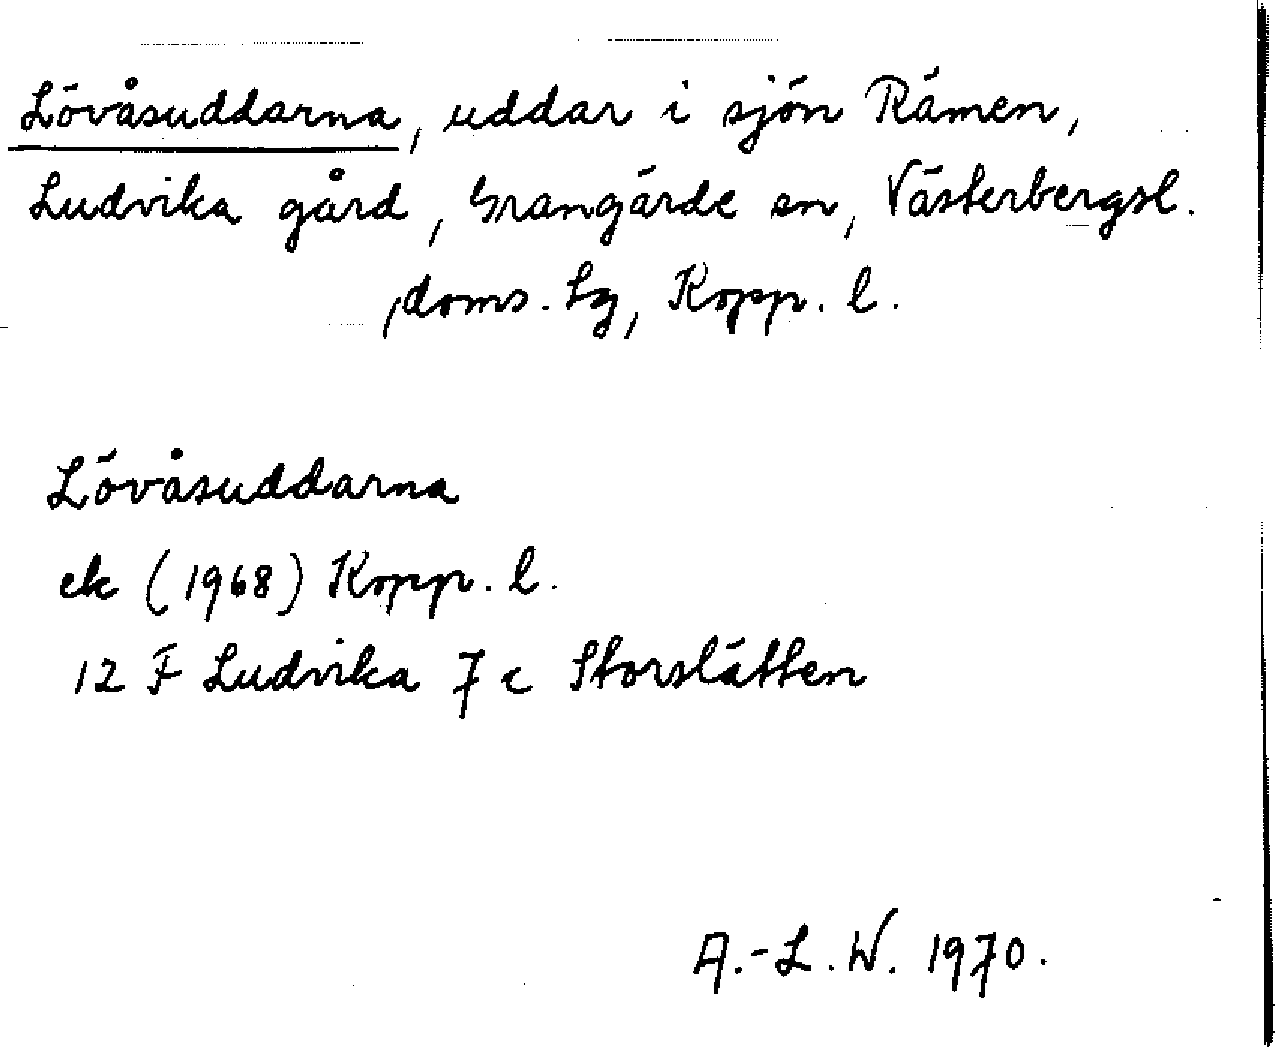 Lövåsuddarna, uddar i sjön Rämen,
Ludvika gård, Grangärde sn, Västerbergsl.
doms. tg, Kopp. l.
Lövåsuddarna
ek (1968) Kopp. l.
12 F Ludvika 7 c Storslätten
A.-L. W. 1970.